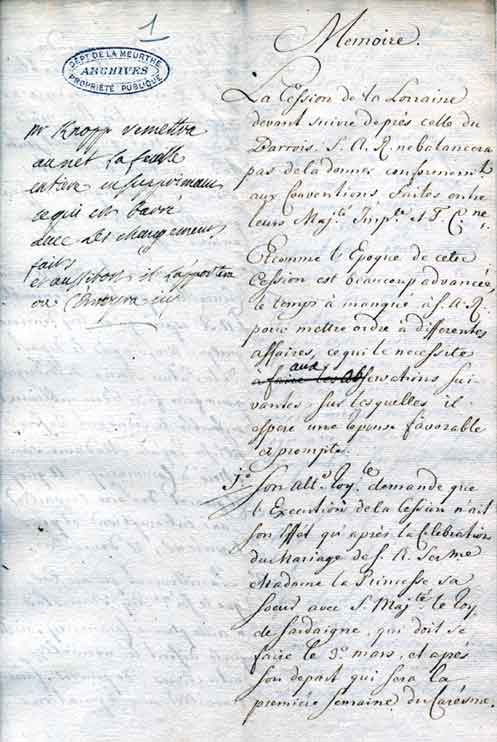 1
DÉPT DE LA MEURTHE
ARCHIVES
PROPRIÉTÉ PUBLIQUE
mr Knopp remettra
au net la feuille
entiere en supprimant
ce qui est barré
avec les changemens
faits
et aussitost il rapportera
ou
Memoire.
La Cession de la Lorraine
devant suivre de près celle du
Barrois. S. A. R. ne balancera
pas de la donner conformemt
aux Conventions faites entre
leurs Majtés Imple et T. Cne.
Et comme l'Epoque de cette
Cession est beaucoup advancée,
le temps à manqué à S. A. R.
pour mettre ordre à differentes
affaires, ce qui le necessite
aux
a faire les observations sui-
vantes, sur lesquelles il
espere une reponse favorable
et prompte.
1o. Son Alte. Royle demande que
l'Execution de la Cession n'ait
son Effet qu'après la Celebration
du Mariage de S. A. Serme
Madame la Princesse sa
soeur avec S. Majté. le Roy
de Sardaigne, qui doit se
faire le 5e mars, et après
son depart qui sera la
premiére semaine du Carésme.